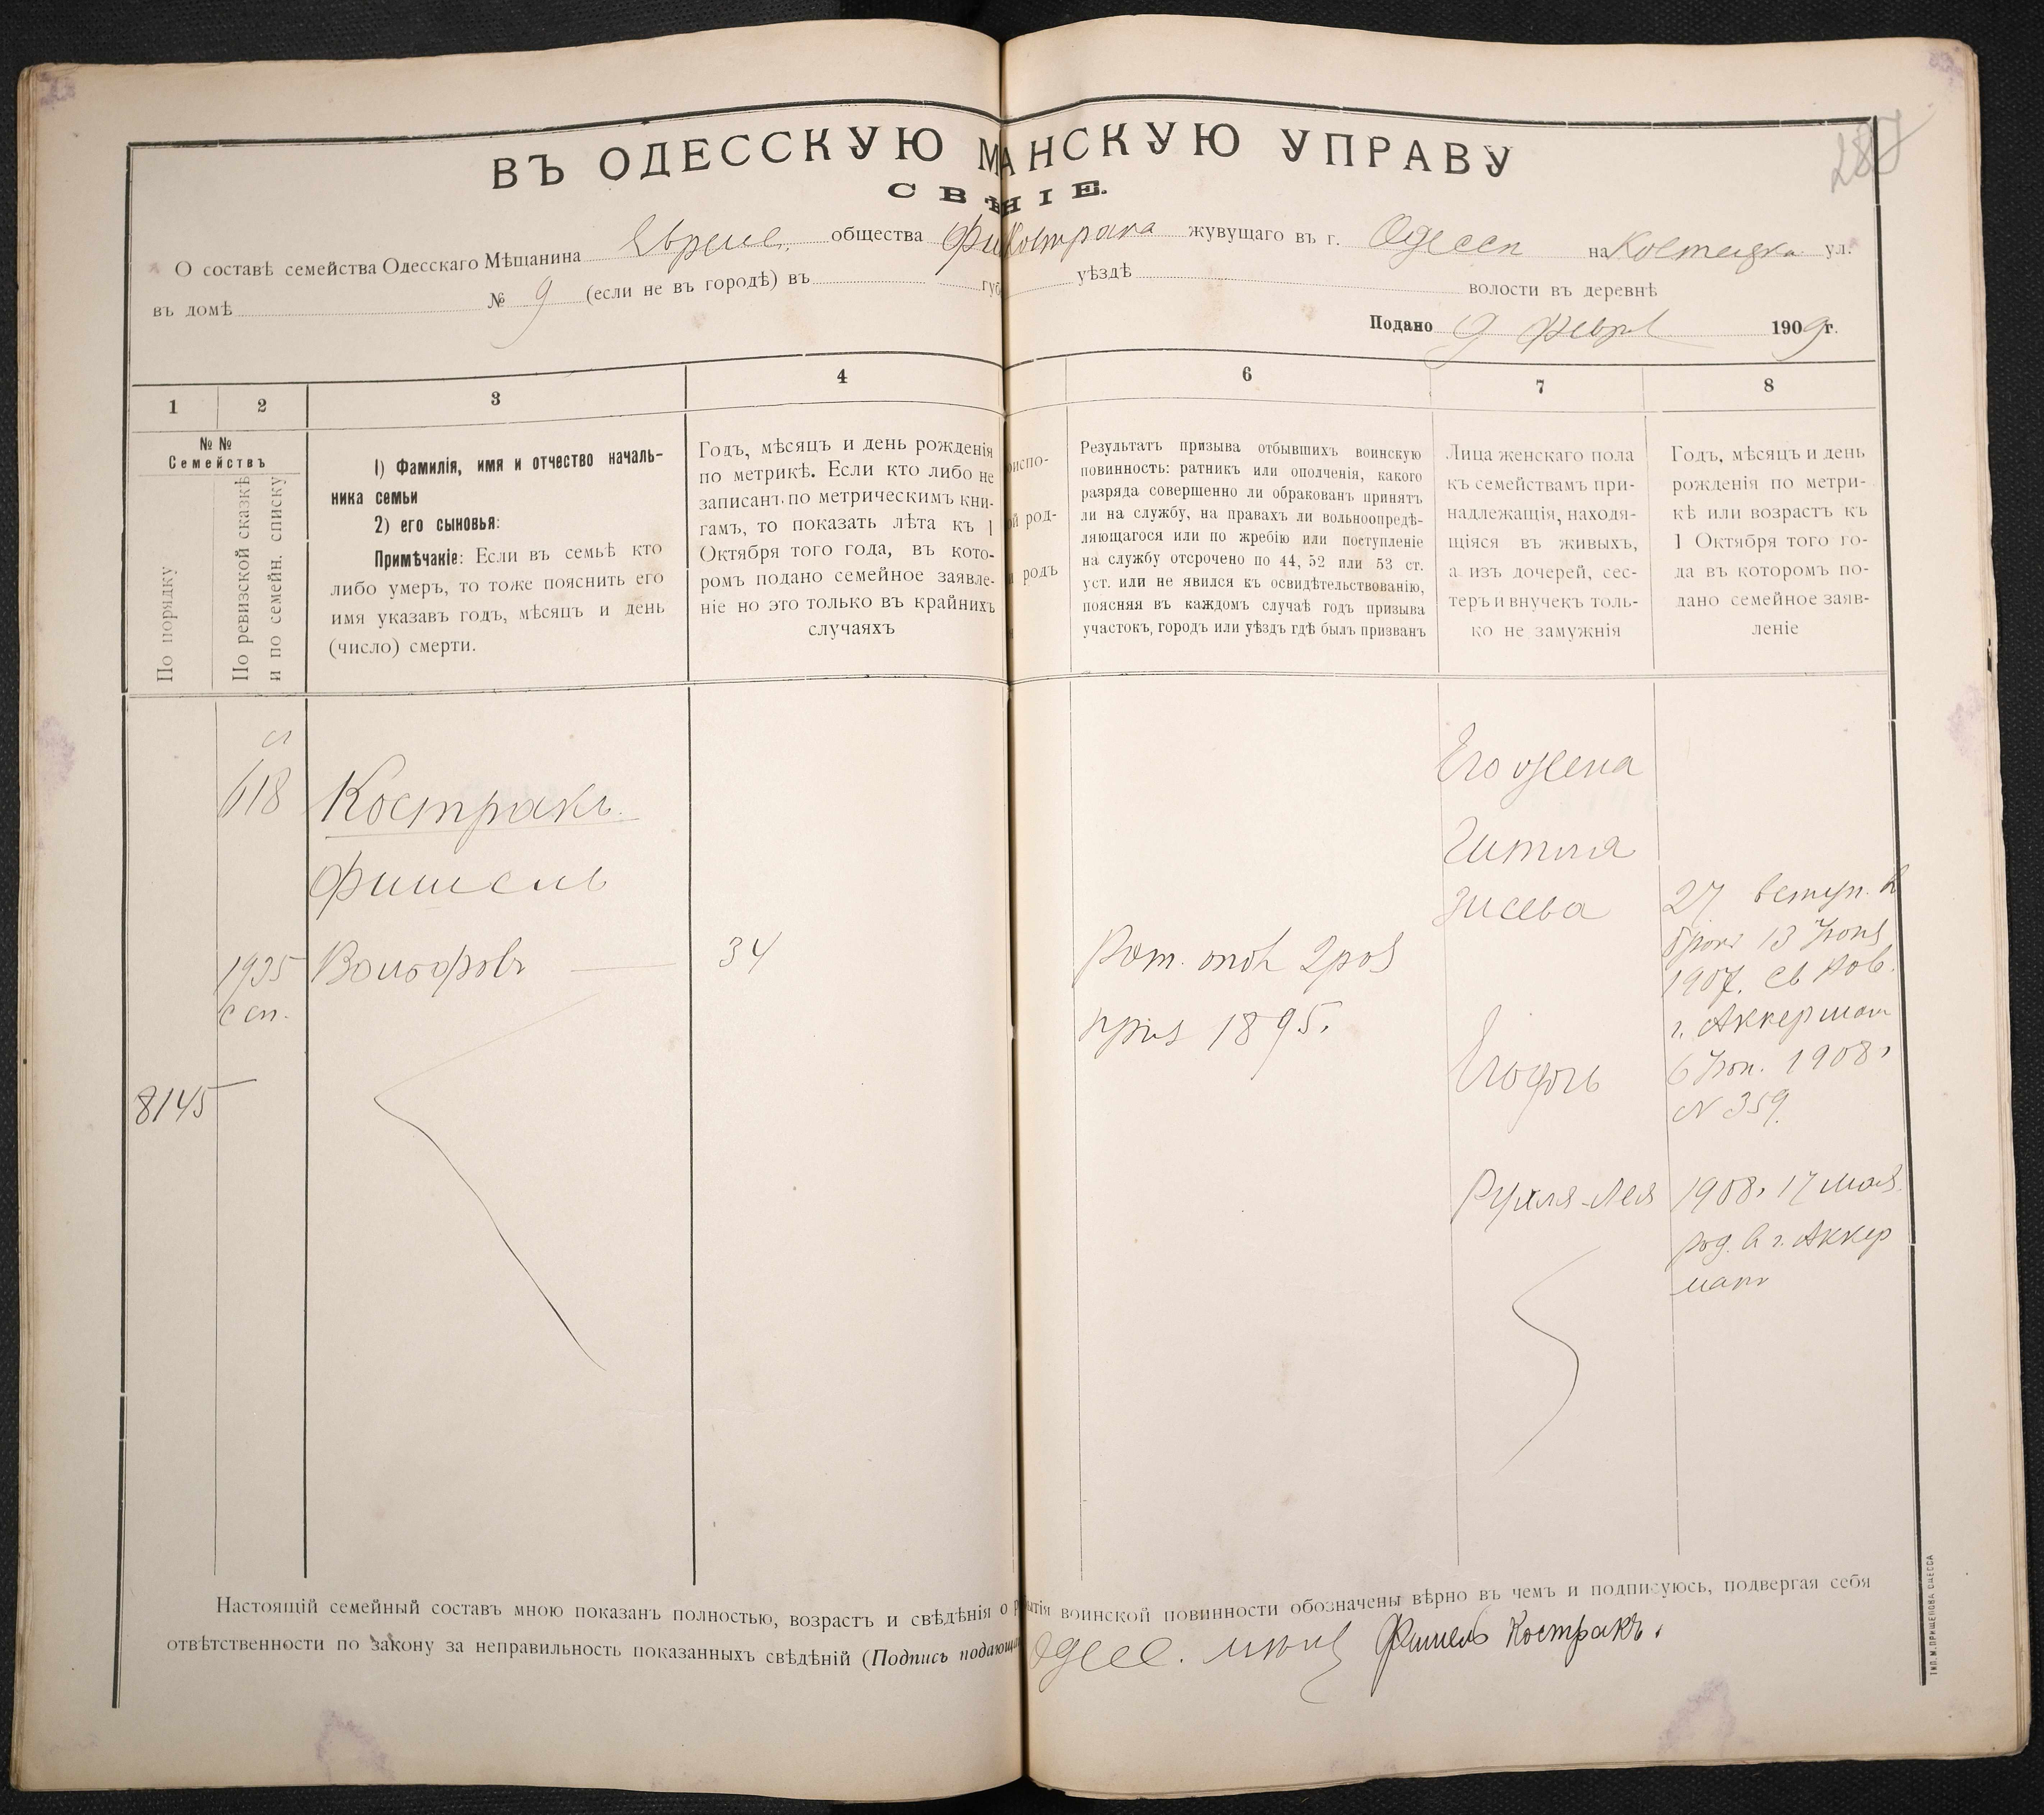 287
ВЪ ОДЕССКУЮ М АНСКУЮ УПРАВУ
СВѢ НІЕ.
О составѣ семейства Одесскаго Мѣщанина Еврейс. общества Фи Костракa жувущаго въ г. Одессѣ на Костецка ул.
въ домѣ № 9 (если не въ городѣ) въ губ уѣздѣ волости въ деревнѣ
Подано 9 Февр 1909 г.
1 2 3 4 6 7 8
№ № Семействъ
По порядку
По ревизской сказкѣ
и по семейн. списку
1) Фамилія, имя и отчество началь-
ника семьи
2) его сыновья:
Примѣчакіе: Если въ семьѣ кто
либо умеръ, то тоже пояснить его
имя указавъ годъ, мѣсяцъ и день
(число) смерти.
Годъ, мѣсяцъ и день рожденія
по метрикѣ. Если кто либо не
записанъ по метрическимъ кни-
гамъ, то показать лѣта къ 1
Октября того года, въ кото-
ромъ подано семейное заявле-
ніе но это только въ крайнихъ
случаяхъ
риспо-
ой род-
родъ
Результатъ призыва отбывшихъ воинскую
повинность: ратникъ или ополченія, какого
разряда совершенно ли обракованъ принятъ
ли на службу, на правахъ ли вольноопредѣ-
ляющагося или по жребію или поступленіе
на службу отсрочено по 44, 52 или 53 ст.
уст. или не явился къ освидѣтельствованію,
поясняя въ каждомъ случаѣ годъ призыва
участокъ, городъ или уѣздъ гдѣ былъ призванъ
Лица женскаго пола
къ семействамъ при-
надлежащія, находя-
щіяся въ живыхъ,
а изъ дочерей, сес-
теръ и внучекъ толь-
ко не замужнія
Годъ, мѣсяцъ и день
рожденія по метри-
кѣ или возрастъ къ
1 Октября того го-
да въ которомъ по-
дано семейное заяв-
леніе
618
Костракъ.
Фишель
1935
с сп.
Вольфовъ
8145
34
Рат. опол 2 раз
приз 1895.
Его жена
Гитля
Зисева
Его дочь
Рухля-Лея
27 вступ. в
бракъ 13 Іюня
1907. св Рав.
г. Аккерман
6 Іюн. 1908г
№ 359.
1908г 17 мая
род. в г. Аккер
манъ
Настоящій семейный составъ мною показанъ полностью, возрастъ и свѣдѣнія о р бытія воинской повинности обозначены вѣрно въ чемъ и подписуюсь, подвергая себя
отвѣтственности по закону за неправильность показанныхъ свѣдѣній (Подпись подающа Одесс. мѣщ Фишель Костракъ.
ТИП. М. ПРИЩЕПОВА ОДЕССА